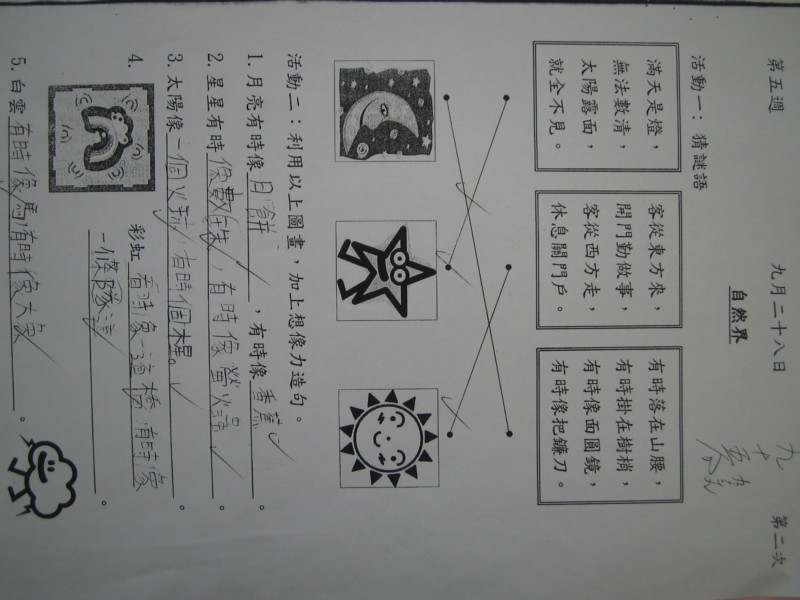 第五週 九月二十八日 第二次
自然界
活動一：猜謎語
滿天是燈，
無法數清，
太陽露面，
就全不見。
客從東方來，
開門勤做事，
客從西方走，
休息關門戶。
有時落在山腰，
有時掛在樹梢，
有時像面圓鏡，
有時像把鐮刀。
活動二：利用以上圖畫，加上想像力造句。
1. 月亮有時像月餅，有時像香蕉。
2. 星星有時像，有時像螢火蟲。
3. 太陽像一個火球，有時個木星。
4. 彩虹有時像一道橋有時像
一條隊。
5. 白雲有時像馬有時像大象。